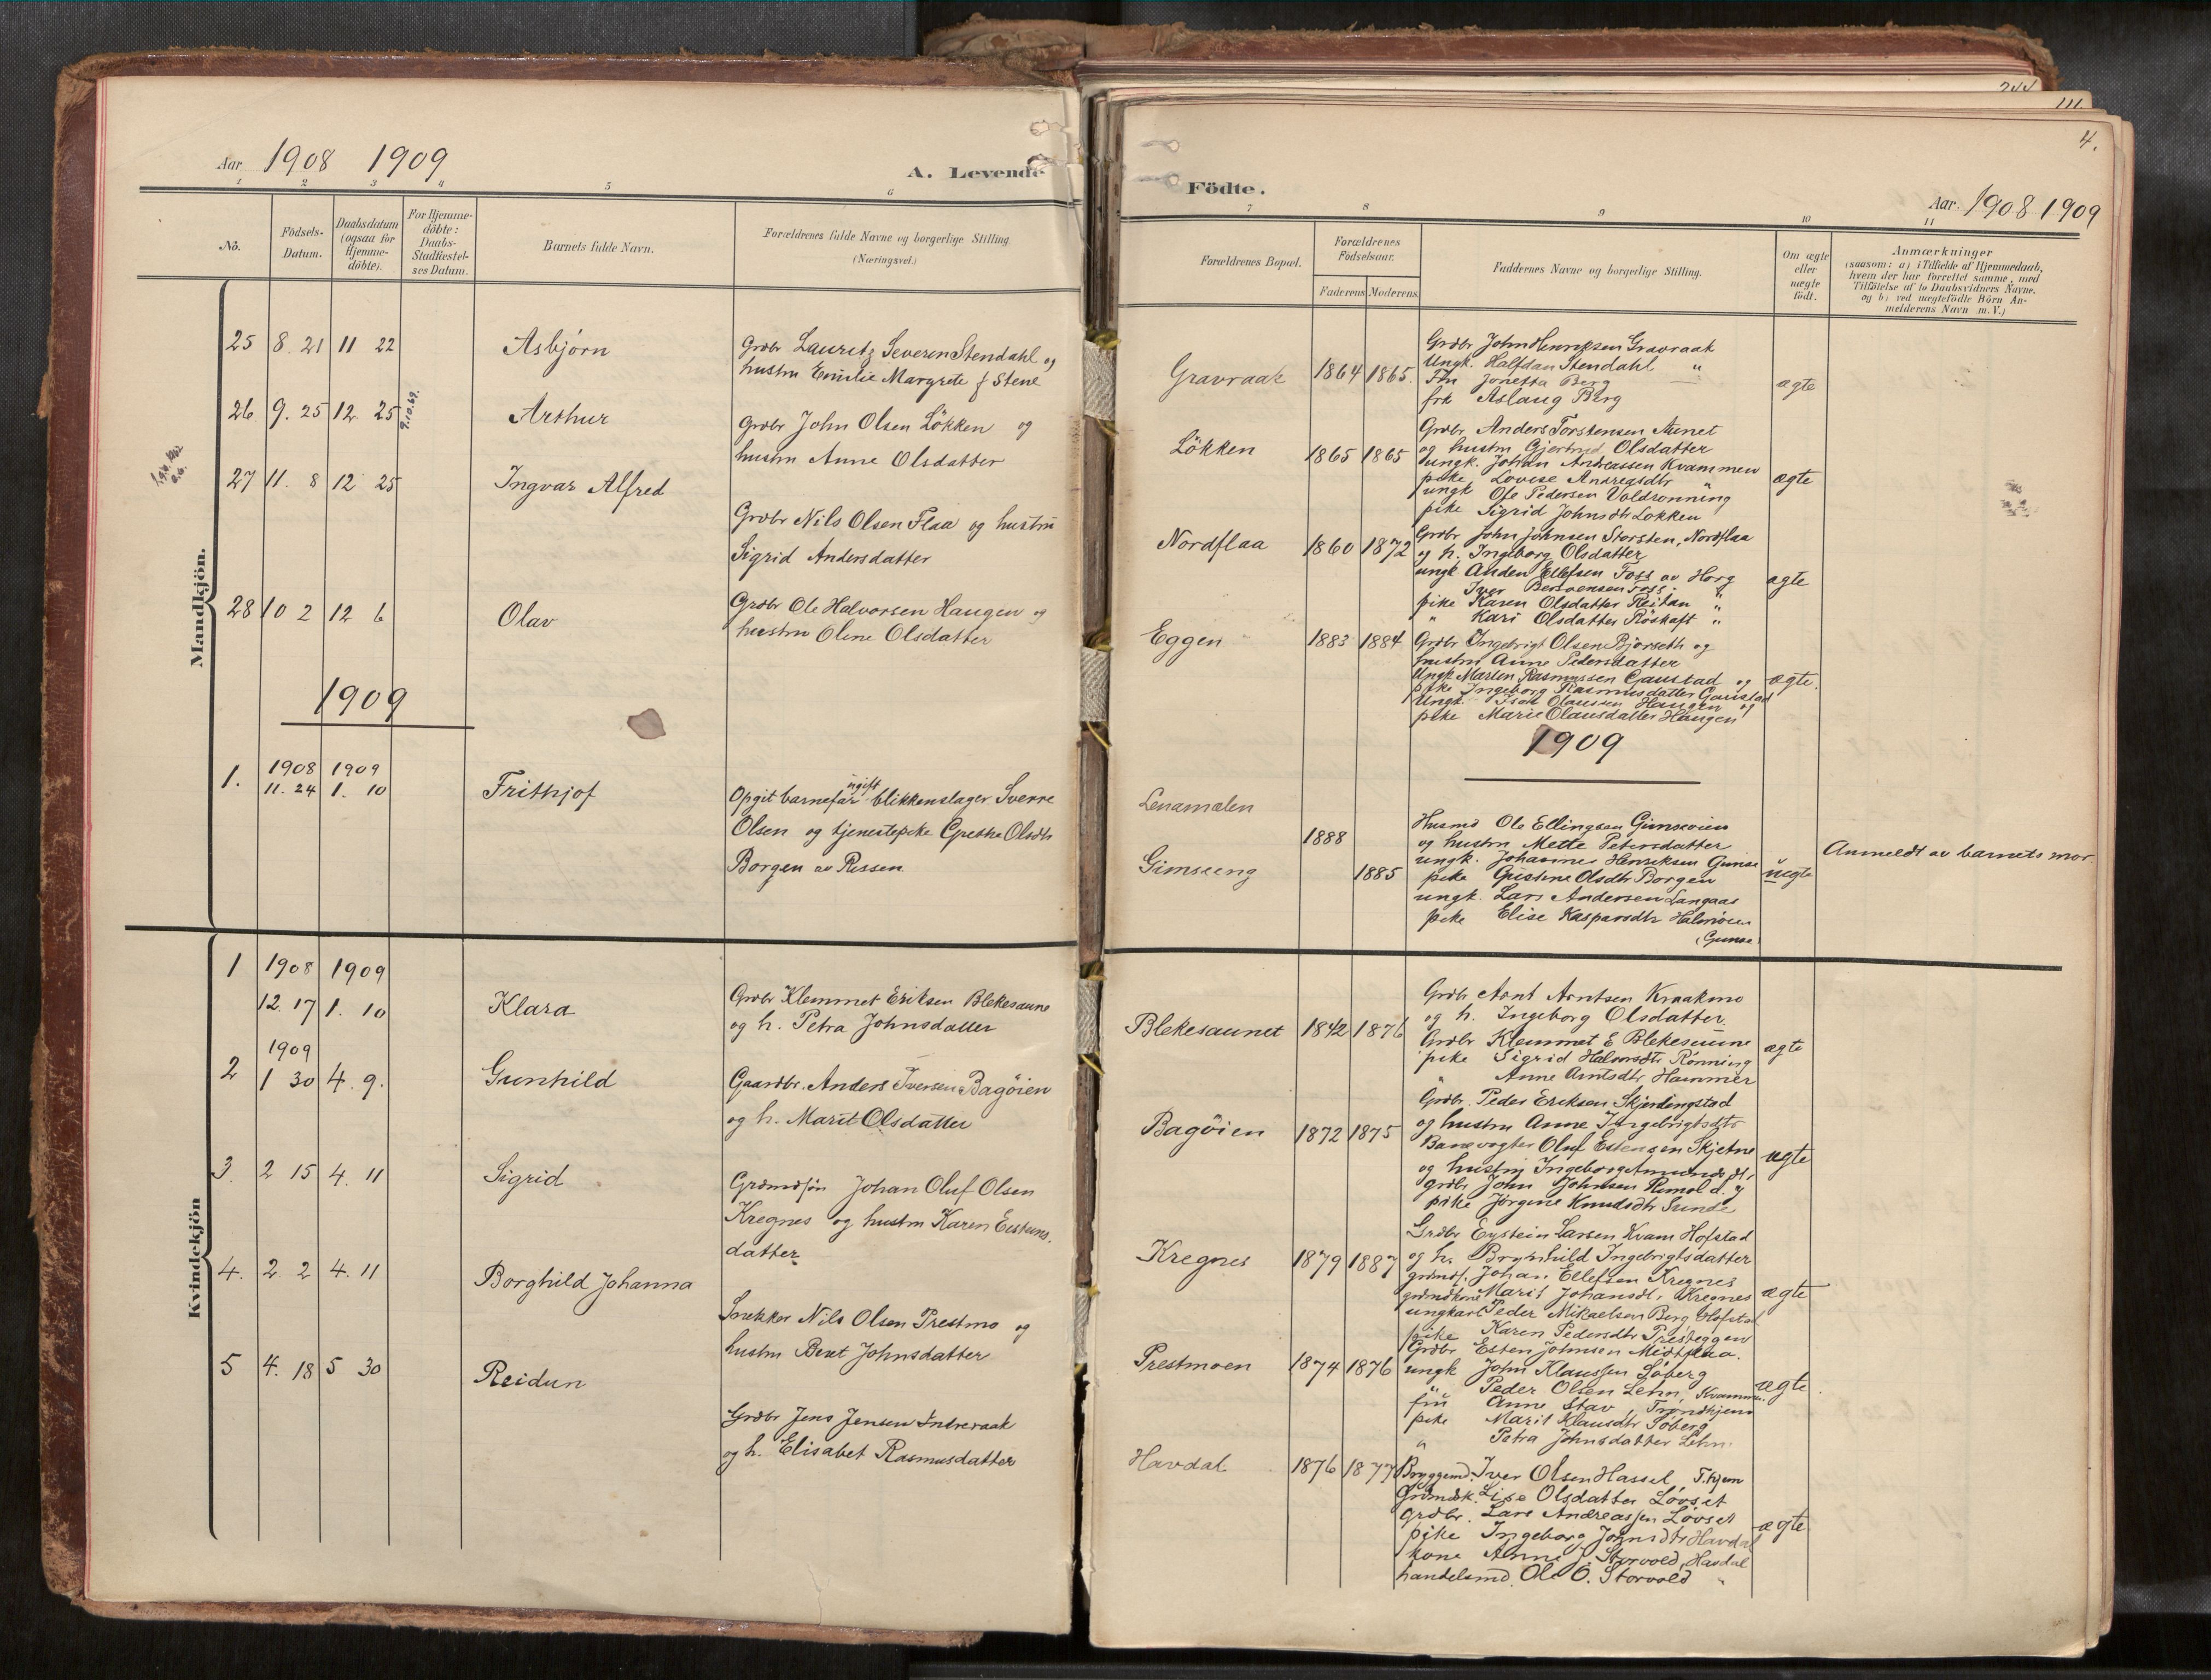 Aar 1908 1909
A. Levende
1 2 3 4 5 6
No.
Födsels-
Datum.
Daabsdatum
(ogsaa for
Hjemme-
döbte).
For Hjemme-
döbte:
Daabs-
Stadfæstel-
ses Datum.
Barnets fulde Navn.
Forældrenes fulde Navne og borgerlige Stilling
(Næringsvei.)
Mandkjön.
25 8. 21 11 22 Asbjørn
Grdbr Lauritz Severin Stendahl og
hustru Emilie Margrete f Stene
26 9. 25 12. 25 9.10.69. Arthur
Grdbr John Olsen Lökken og
hustru Anne Olsdatter
27 11. 8 12 25 Ingvar Alfred
Grdbr Nils Olsen Flaa og hustru
Sigrid Andersdatter
28 10 2 12 6 Olav
Grdbr Ole Halvorsen Haugen og
hustru Oline Olsdatter
1909
1. 1908 1909
11. 24 1. 10 Frithjof
ugift
Opgit barnefar blikkenslager Sverre
Olsen og tjenestepike Grethe Olsdtr
Borgen av Rissen
Kvindekjön
1 1908 1909
12. 17 1. 10 Klara
Grdbr Klemmet Eriksen Blekesaune
og h. Petra Johnsdatter
1909
2 1 30 4. 9. Gunhild
Gaardbr. Anders Iversen Bagöien
og h. Marit Olsdatter
3. 2 15 4. 11 Sigrid
Grdmdsøn Johan Oluf Olsen
Kregnes og hustru Karen Eistens-
datter
4. 2 2 4. 11 Borghild Johanna
Snekker Nils Olsen Prestmo og
hustru Beret Johnsdatter
5 4. 18 5 30 Reidun
Grdbr Jens Jensen Indreraak
og h. Elisabet Rasmusdatter
244
111.
4.
Födte.
Aar 1908 1909
7 8 9 10 11
Forældrenes Bopæl.
Forældrenes
Födselsaar.
Faderens Moderens
Faddernes Navne og borgerlige Stilling.
Om ægte
eller
uægte
födt.
Anmærkninger
(saasom: a) i Tilfælde af Hjemmedaab,
hvem der har forrettet samme, med
Tilföielse af to Daabsvidners Navne.
og b) ved uægtefödte Börn An-
melderens Navn m. V.)
Gravraak 1864 1865. ægte
Grdbr John Henriksen Gravraak
Ungk. Halfdan Stendahl "
Fru Jonetta Berg
frk Aslaug Berg
Lökken 1865 1865 ægte
Grdbr Anders Torstensen Aunet
og hustru Gjertrud Olsdatter
ungk. Johan Andreassen Kvammen
pike Lovise Andreasdtr "
ungk Ole Pedersen Voldrönning
pike Sigrid Johnsdtr Lökken
Nordflaa 1860 1872 ægte
Grdbr John Johnsen Storsten, Nordflaa
og h. Ingeborg Olsdatter
ungk Anden Ellefsen Foss av Horg
" Iver Foss "
pike Karen Olsdatter Reitan "
" Kari Olsdatter Röskaft "
Eggen 1883 1884 ægte.
Grdbr Ingebrigt Olsen Bjørseth og
hustru Anne Pedersdatter
Ungk Martin Rasmussen Gaustad og
pike Ingeborg Rasmusdatter Gaustad
Ungk. Olausen Haugen og
pike Marie Olausdatter Haugen
1909
Lenamælen 1888
Gimseeng 1885 uægte
Husmd Ole Ellingsen Gimseöien
og hustru Mette Petersdatter
ungk. Johannes Henriksen Gimse
pike Gjestine Olsdtr Borgen
ungk. Lars Andersen Langaas
pike Elise Kasparsdtr Halmöien
(Gimse)
Anmeldt av barnets mor
Blekesaunet 1842 1876 ægte
Grdbr Arnt Arntsen Kraakmo
og h. Ingeborg Olsdatter.
Grdbr Klemmet E Blekesaune
pike Sigrid Halvorsdtr Rönning
" Anne Arntsdtr Hammer
Bagöien 1872 1875 ægte
Grdbr. Peder Eriksen Skjerdingstad
og hustru Anne Ingebrigtsdtr
Banevogter Oluf Estensen Skjetne
og hustru Ingeborg Amundsdt.
grdbr John Johnsen Rimol d. y
pike Jørgine Knudsdtr Sunde
Kregnes 1879 1887 ægte
Grdbr Eystein Larsen Kvam Hofstad
og h. Brynhild Ingebrigtsdatter
grdmds. Johan Ellefsen Kregnes
grdmdkne Marit Johansdt. Kregnes
ungkarl Peder Mikaelsen Berg Hofstad
pike Karen Pedersdtr Presteggen
Prestmoen 1874 1876 ægte.
Grdbr Esten Johnsen Midtflaa.
ungk John Klaussen Søberg
" Peder Olsen Lehn, Kvammen
fru Anne Stav, Trondhjem
pike Marit Klausdtr Søberg
" Petra Johnsdatter Lehn.
Havdal 1876 1877 ægte
Bryggemd. Iver Olsen Hassel T.hjem
Grdmdsk. Lise Olsdatter Løvset
Grdbr. Lars Andreassen Løvset
pike Ingeborg Johnsdtr Havdal
kone Anne J. Storvold, Havdal
handelsmd. Ole O. Storvold "